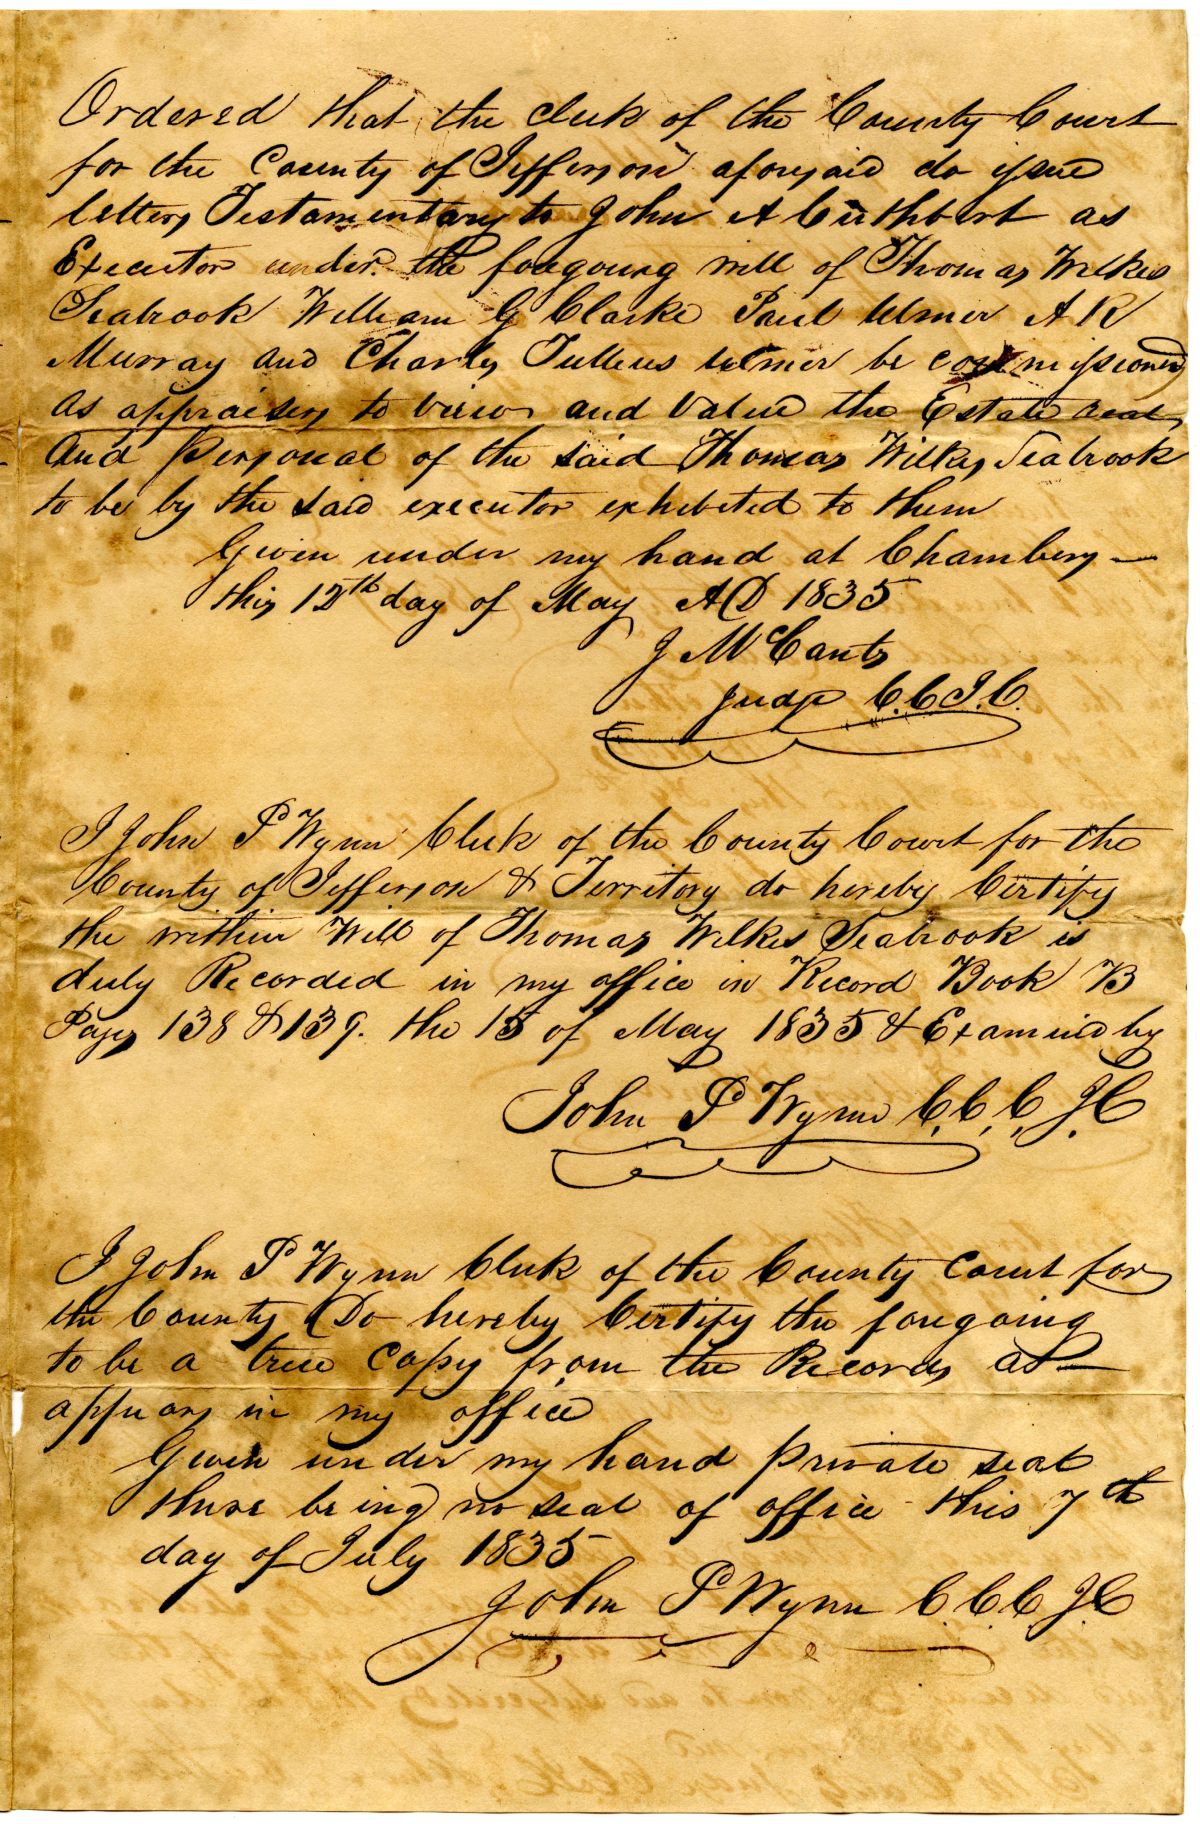 Ordered that the clerk of the County Court
for the County of Jefferson aforesaid do issue
letters Testamentary to John A Cuthbert as
Executor under the foregoing will of Thomas Wilkes
Seabrook William G Clarke Paul Ulmer A R
Murray and Charles Tulleus Ulmer be commissioned
as appraisers to view and value the Estate real
and Personal of the said Thomas Wilkes Seabrook
to be by the said executor exhibited to them
Given under my hand at Chambers —
this 12th day of May AD 1835
J McCants
Judge C.C J.C.
I John P Wynn Clerk of the County Court for the
County of Jefferson & Territory do hereby Certify
the within Will of Thomas Wilkes Seabrook is
duly Recorded in my office in Record Book B
Pages 138 & 139. the 15 of May 1835 & Examined by
John P Wynn C.C.C. J.C
I John P Wynn Clerk of the County Court for
the County Do hereby Certify the foregoing
to be a true Copy from the Records as —
appears in my office
Given under my hand private seal
there being no seal of office this 7th
day of July 1835
John P Wynn C.C.C. J.C